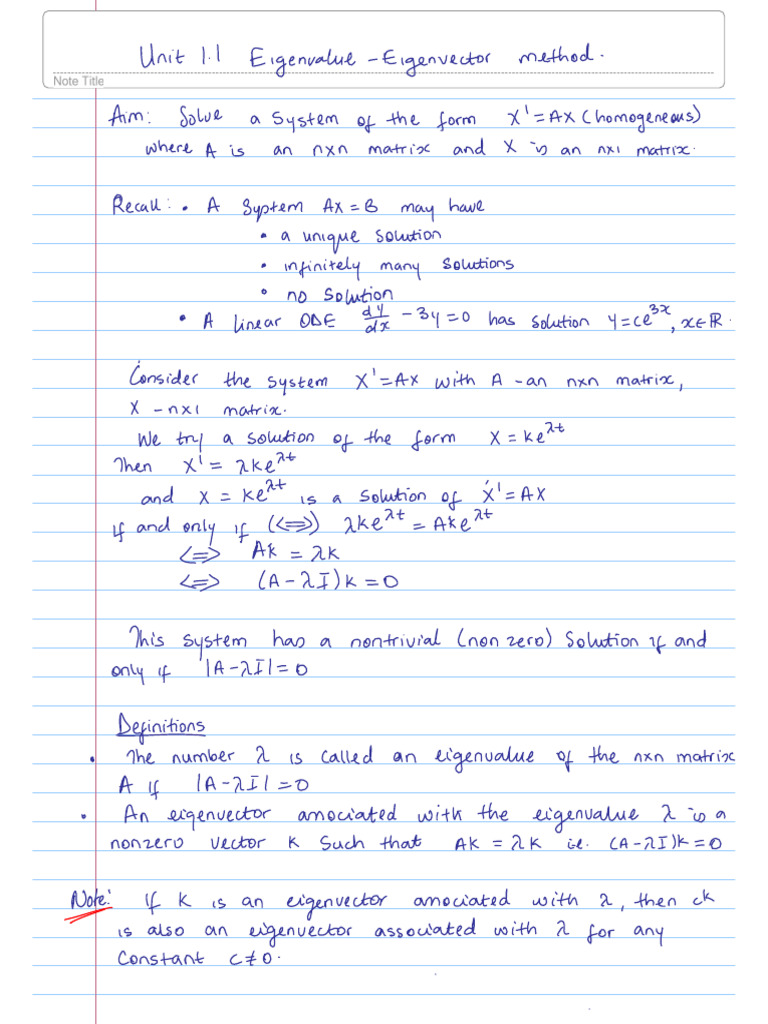 Unit 1.1 Eigenvalue - Eigenvector method.
Note Title
Aim: Solve a system of the form X' = AX (homogeneous)
where A is an nxn matrix and X is an nx1 matrix.
Recall: • A System AX = B may have
• a unique solution
• infinitely many solutions
• no solution
• A linear ODE dy/dx - 3y = 0 has solution y = ce^{3x}, x ∈ ℝ.
Consider the system X' = AX with A - an nxn matrix,
X - nx1 matrix.
We try a solution of the form X = ke^{λt}
Then X' = λke^{λt}
and X = ke^{λt} is a solution of X' = AX
if and only if (⇔) λke^{λt} = Ake^{λt}
⇔ Ak = λk
⇔ (A - λI)k = 0
This system has a nontrivial (non zero) solution if and
only if |A - λI| = 0
Definitions
• The number λ is called an eigenvalue of the nxn matrix
A if |A - λI| = 0
• An eigenvector associated with the eigenvalue λ is a
nonzero vector k such that Ak = λk i.e. (A - λI)k = 0
Note: If k is an eigenvector associated with λ, then ck
is also an eigenvector associated with λ for any
constant c ≠ 0.